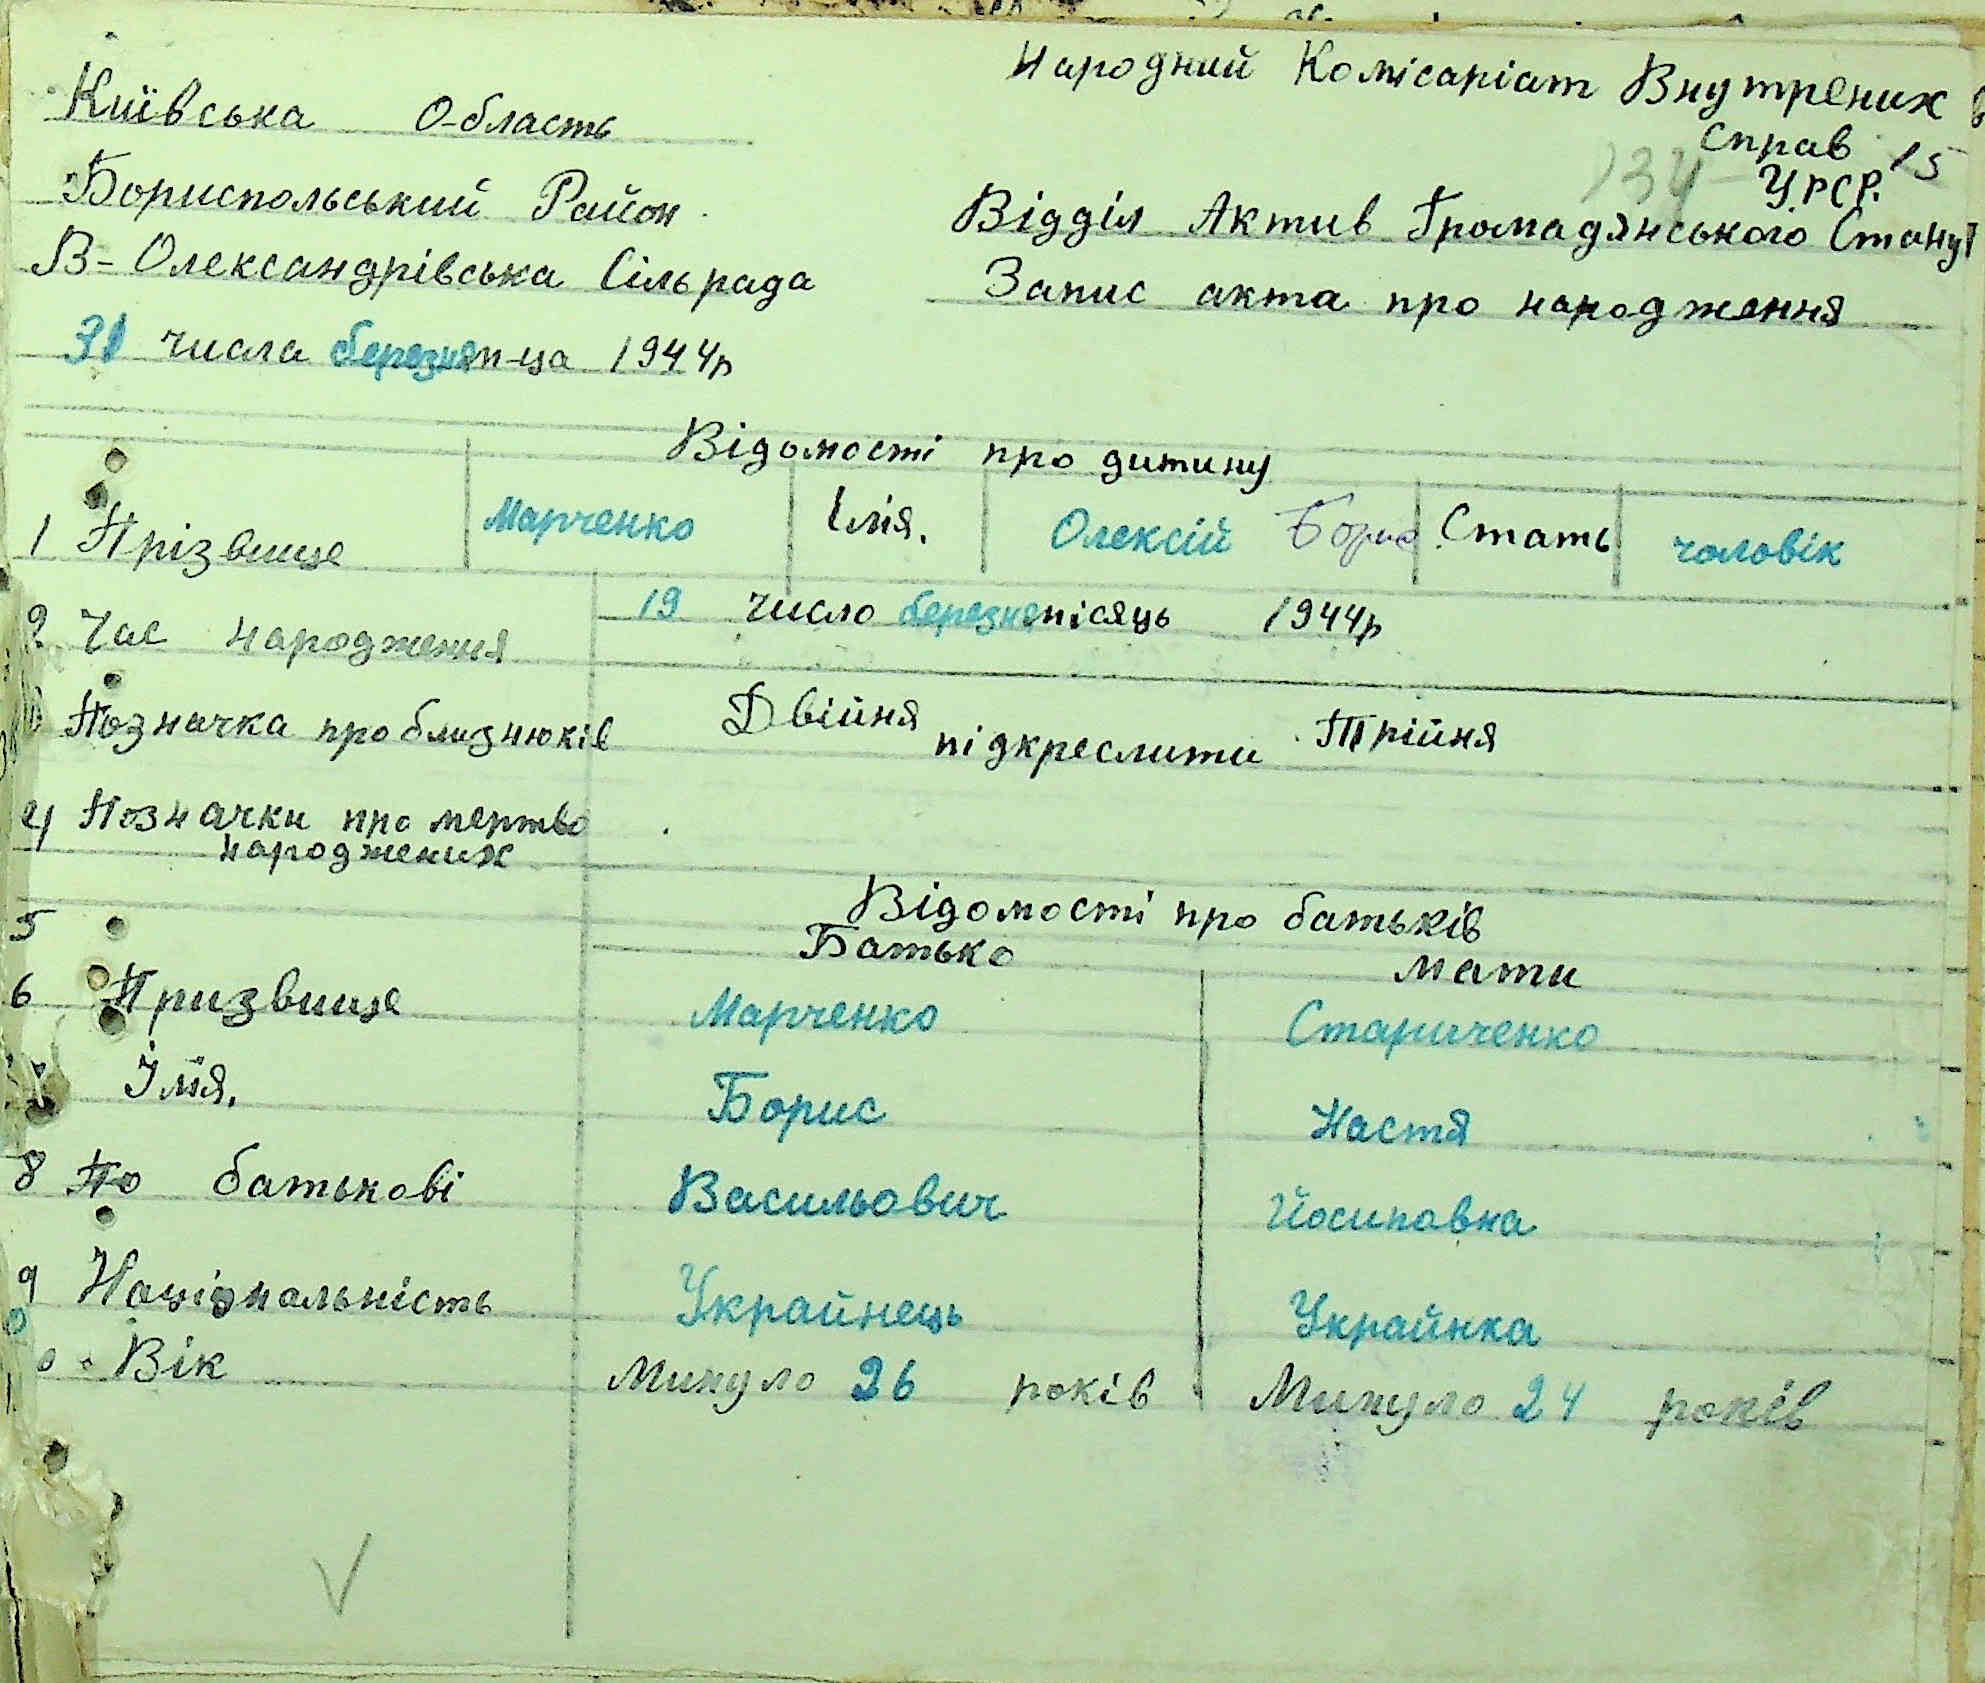 Київська Область
Бориспольський Район
В-Олександрівська Сільрада
31 числа березня м-ца 1944р
Народний Комісаріат Внутрених
Справ 15
134 УРСР.
Відділ Актив Громадянського Стану
Запис акта про народження
Відомості про дитину
1 Прізвище Марченко Імія. Олексій Борис Стать чоловік
2 Час народження 19 число березня місяць 1944р
Позначка про близнюків Двійня підкреслити Трійня
4 Позначки про мертво
народжених
5 Відомості про батьків
Батько мати
6 Призвище Марченко Стариченко
Імія. Борис Настя
8 По батькові Васильович Йосиповна
9 Національність Украйнець Украйнка
Вік Минуло 26 років Минуло 24 років